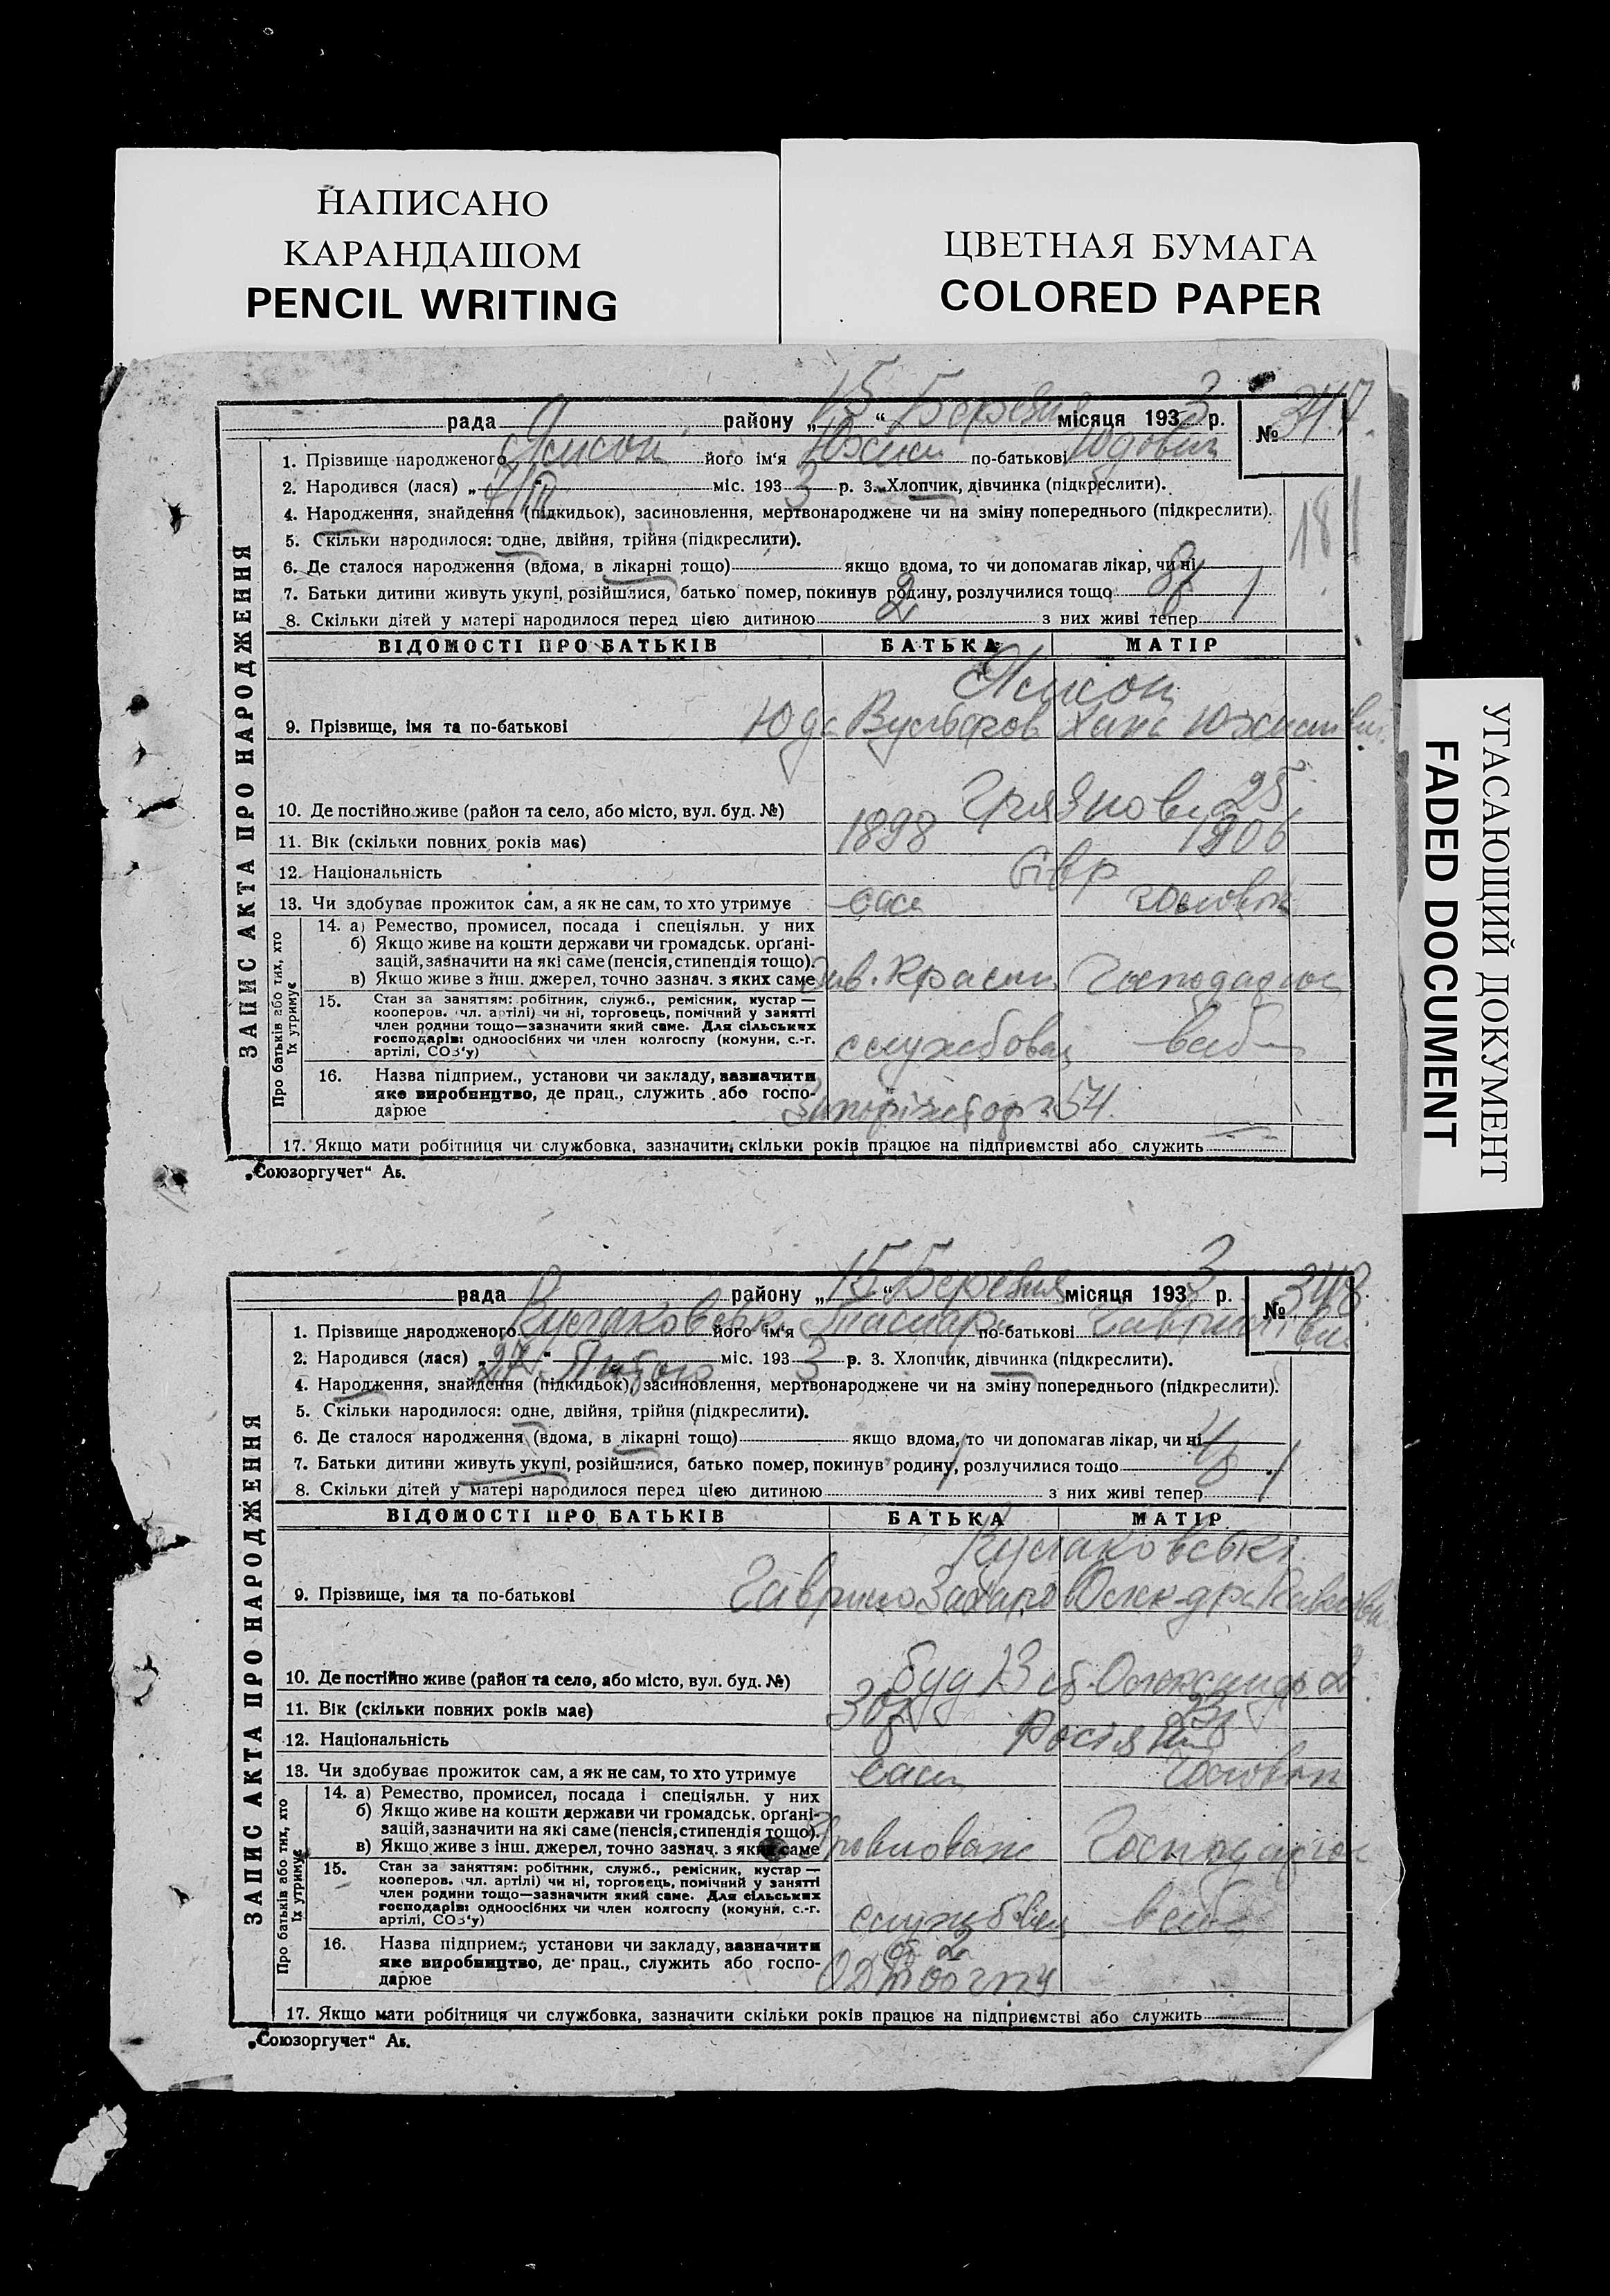 НАПИСАНО
КАРАНДАШОМ
PENCIL WRITING
ЦВЕТНАЯ БУМАГА
COLORED PAPER
УГАСАЮЩИЙ ДОКУМЕНТ
FADED DOCUMENT
ЗАПИС АКТА ПРО НАРОДЖЕННЯ
рада району „15“ Березня місяця 1933 р. № 347
1. Прізвище народженого його ім'я по-батькові Юдович
2. Народився (лася) „ “ міс. 1933 р. 3. Хлопчик, дівчинка (підкреслити).
4. Народження, знайдення (підкидьок), засиновлення, мертвонароджене чи на зміну попереднього (підкреслити).
5. Скільки народилося: одне, двійня, трійня (підкреслити).
6. Де сталося народження (вдома, в лікарні тощо) якщо вдома, то чи допомагав лікар, чи ні
7. Батьки дитини живуть укупі, розійшлися, батько помер, покинув родину, розлучилися тощо
8. Скільки дітей у матері народилося перед цією дитиною 2 з них живі тепер 1
181
ВІДОМОСТІ ПРО БАТЬКІВ БАТЬКА МАТІР
9. Прізвище, імя та по-батькові Юда Хана
10. Де постійно живе (район та село, або місто, вул. буд. №) 25
11. Вік (скільки повних років має) 1898 1906
12. Національність євр
13. Чи здобуває прожиток сам, а як не сам, то хто утримує сам чоловік
Про батьків або тих, хто їх утримує
14. а) Ремество, промисел, посада і спеціяльн. у них
б) Якщо живе на кошти держави чи громадськ. орґані-
зацій, зазначити на які саме (пенсія, стипендія тощо).
в) Якщо живе з інш. джерел, точно зазнач. з яких саме
15. Стан за заняттям: робітник, служб., ремісник, кустар —
кооперов. чл. артілі) чи ні, торговець, помічний у занятті
член родини тощо—зазначити який саме. Для сільських
господарів: одноосібних чи член колгоспу (комуни, с.-г.
артілі, СОЗ'у) службовец
16. Назва підприєм., установи чи закладу, зазначити
яке виробництво, де прац., служить або госпо-
дарює 54
17. Якщо мати робітниця чи службовка, зазначити скільки років працює на підприємстві або служить
„Союзоргучет“ Ав.
ЗАПИС АКТА ПРО НАРОДЖЕННЯ
рада району „15“ Березня місяця 1933 р. № 348
1. Прізвище народженого його ім'я Тамара по-батькові
2. Народився (лася) „27“ Лютого міс. 1933 р. 3. Хлопчик, дівчинка (підкреслити).
4. Народження, знайдення (підкидьок), засиновлення, мертвонароджене чи на зміну попереднього (підкреслити).
5. Скільки народилося: одне, двійня, трійня (підкреслити).
6. Де сталося народження (вдома, в лікарні тощо) якщо вдома, то чи допомагав лікар, чи ні
7. Батьки дитини живуть укупі, розійшлися, батько помер, покинув родину, розлучилися тощо
8. Скільки дітей у матері народилося перед цією дитиною 1 з них живі тепер 1
ВІДОМОСТІ ПРО БАТЬКІВ БАТЬКА МАТІР
Кулаковські
9. Прізвище, імя та по-батькові Гаврило Захаров
10. Де постійно живе (район та село, або місто, вул. буд. №) буд
11. Вік (скільки повних років має) 30 23
12. Національність
13. Чи здобуває прожиток сам, а як не сам, то хто утримує сам чоловік
Про батьків або тих, хто їх утримує
14. а) Ремество, промисел, посада і спеціяльн. у них
б) Якщо живе на кошти держави чи громадськ. орґані-
зацій, зазначити на які саме (пенсія, стипендія тощо).
в) Якщо живе з інш. джерел, точно зазнач. з яких саме
15. Стан за заняттям: робітник, служб., ремісник, кустар —
кооперов. чл. артілі) чи ні, торговець, помічний у занятті
член родини тощо—зазначити який саме. Для сільських
господарів: одноосібних чи член колгоспу (комуни, с.-г.
артілі, СОЗ'у)
16. Назва підприєм., установи чи закладу, зазначити
яке виробництво, де прац., служить або госпо-
дарює
17. Якщо мати робітниця чи службовка, зазначити скільки років працює на підприємстві або служить
„Союзоргучет“ Ав.